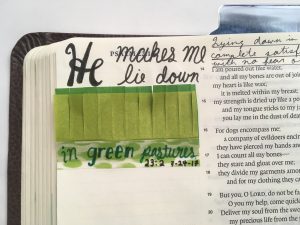 He makes me
lie down
in green pastures
23:2 8-24-18
Lying down in
complete satisf
with no fear o
I am poured out like water,
and all my bones are out of joi
my heart is like wax;
it is melted within my breast;
15 my strength is dried up like a p
and my tongue sticks to my j
you lay me in the dust of deat
16 For dogs encompass me;
a company of evildoers encirc
they have pierced my hands an
17 I can count all my bones—
they stare and gloat over me;
18 they divide my garments amon
and for my clothing they c
19 But you, O LORD, do not be f
O you my help, come quick
20 Deliver my soul from the swo